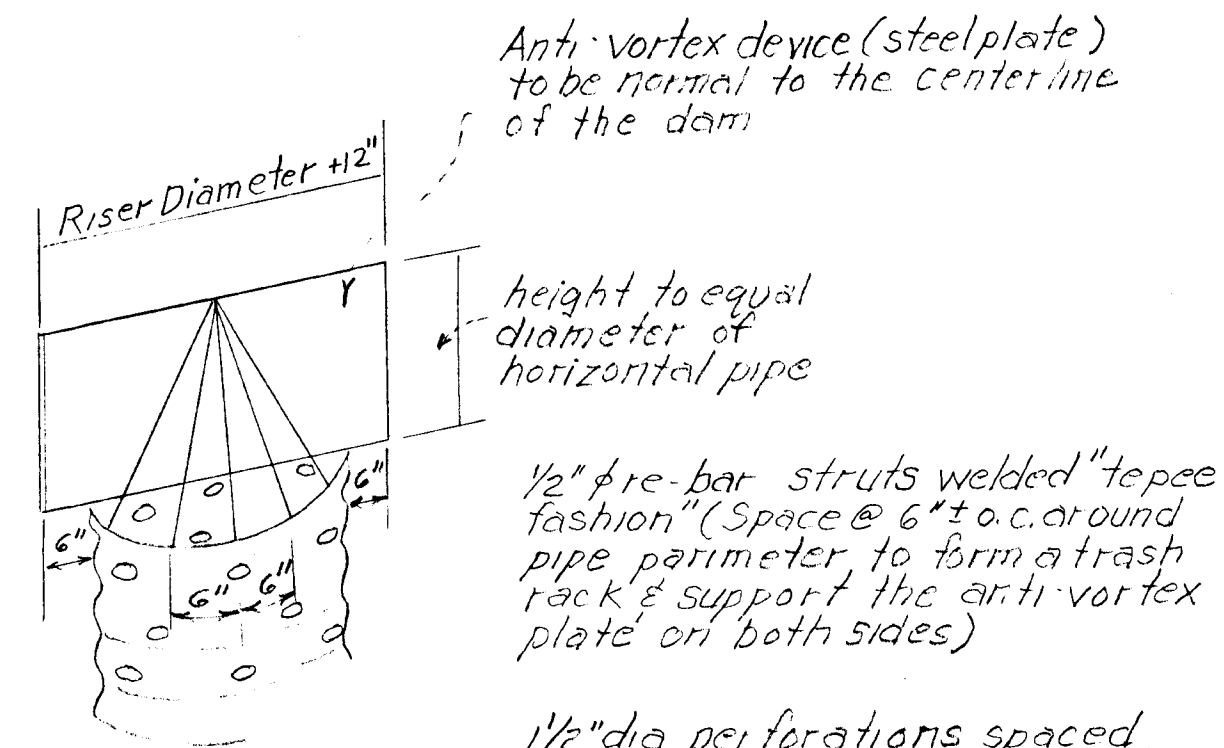 Anti-vortex device (steel plate)
to be normal to the centerline
of the dam
Riser Diameter +12"
height to equal
diameter of
horizontal pipe
6"
6"
6"
6"
1/2" ϕ re-bar struts welded "tepee
fashion" (Space @ 6"± o.c. around
pipe parimeter to form a trash
rack & support the anti-vortex
plate on both sides)
1 1/2" dia perforations spaced